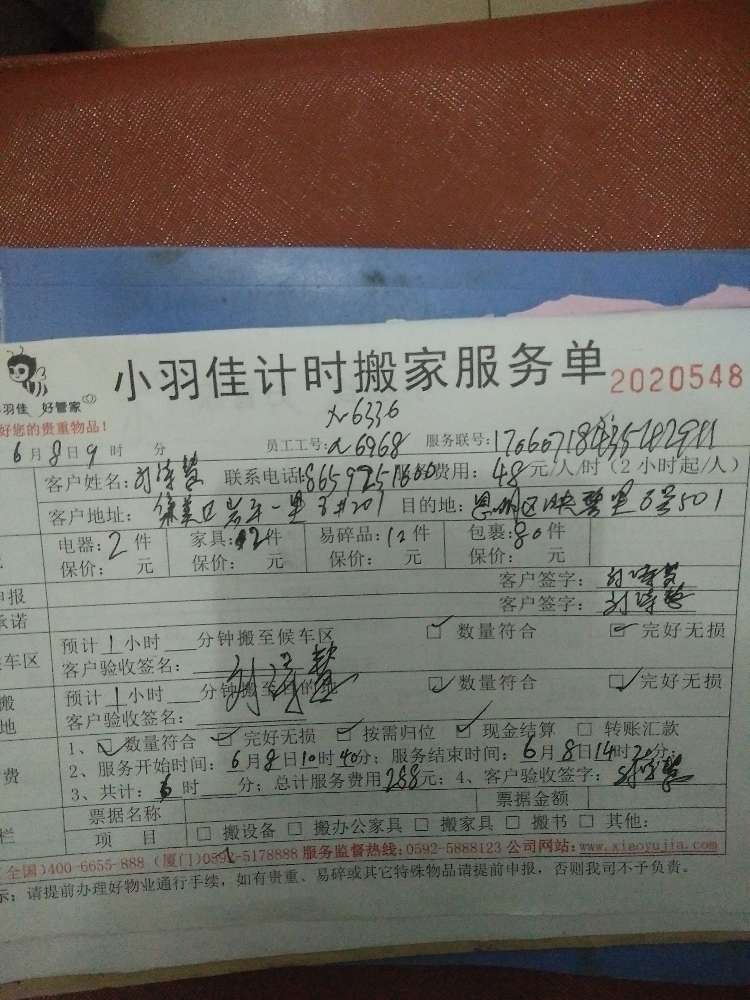 小羽佳计时搬家服务单 2020548
羽佳 好管家
好您的贵重物品！
6336
6月8日9时 分 员工工号: 6968 服务联号:
客户姓名: 联系电话: 费用: 48元/人/时（2小时起/人）
客户地址: 集美区 201 目的地: 501
电器: 2件 家具: 12件 易碎品: 12件 包裹: 80件
保价: 元 保价: 元 保价: 元 保价: 元
客户签字:
申报
客户签字:
承诺
预计1小时 分钟搬至候车区 数量符合 完好无损
车区
客户验收签名:
预计1小时 分钟搬至目的地 数量符合 完好无损
搬
地 客户验收签名:
1、 数量符合 完好无损 按需归位 现金结算 转账汇款
2、服务开始时间: 6月8日10时40分; 服务结束时间: 6月8日14时20分;
费
3、共计: 6时 分; 总计服务费用288元; 4、客户验收签字:
票据名称 票据金额
栏 项 目 搬设备 搬办公家具 搬家具 搬书 其他:
全国)400-6655-888 (厦门)0592-5178888 服务监督热线:0592-5888123 公司网站:www.xiaoyujia.com
示: 请提前办理好物业通行手续, 如有贵重、易碎或其它特殊物品请提前申报, 否则我司不予负责。